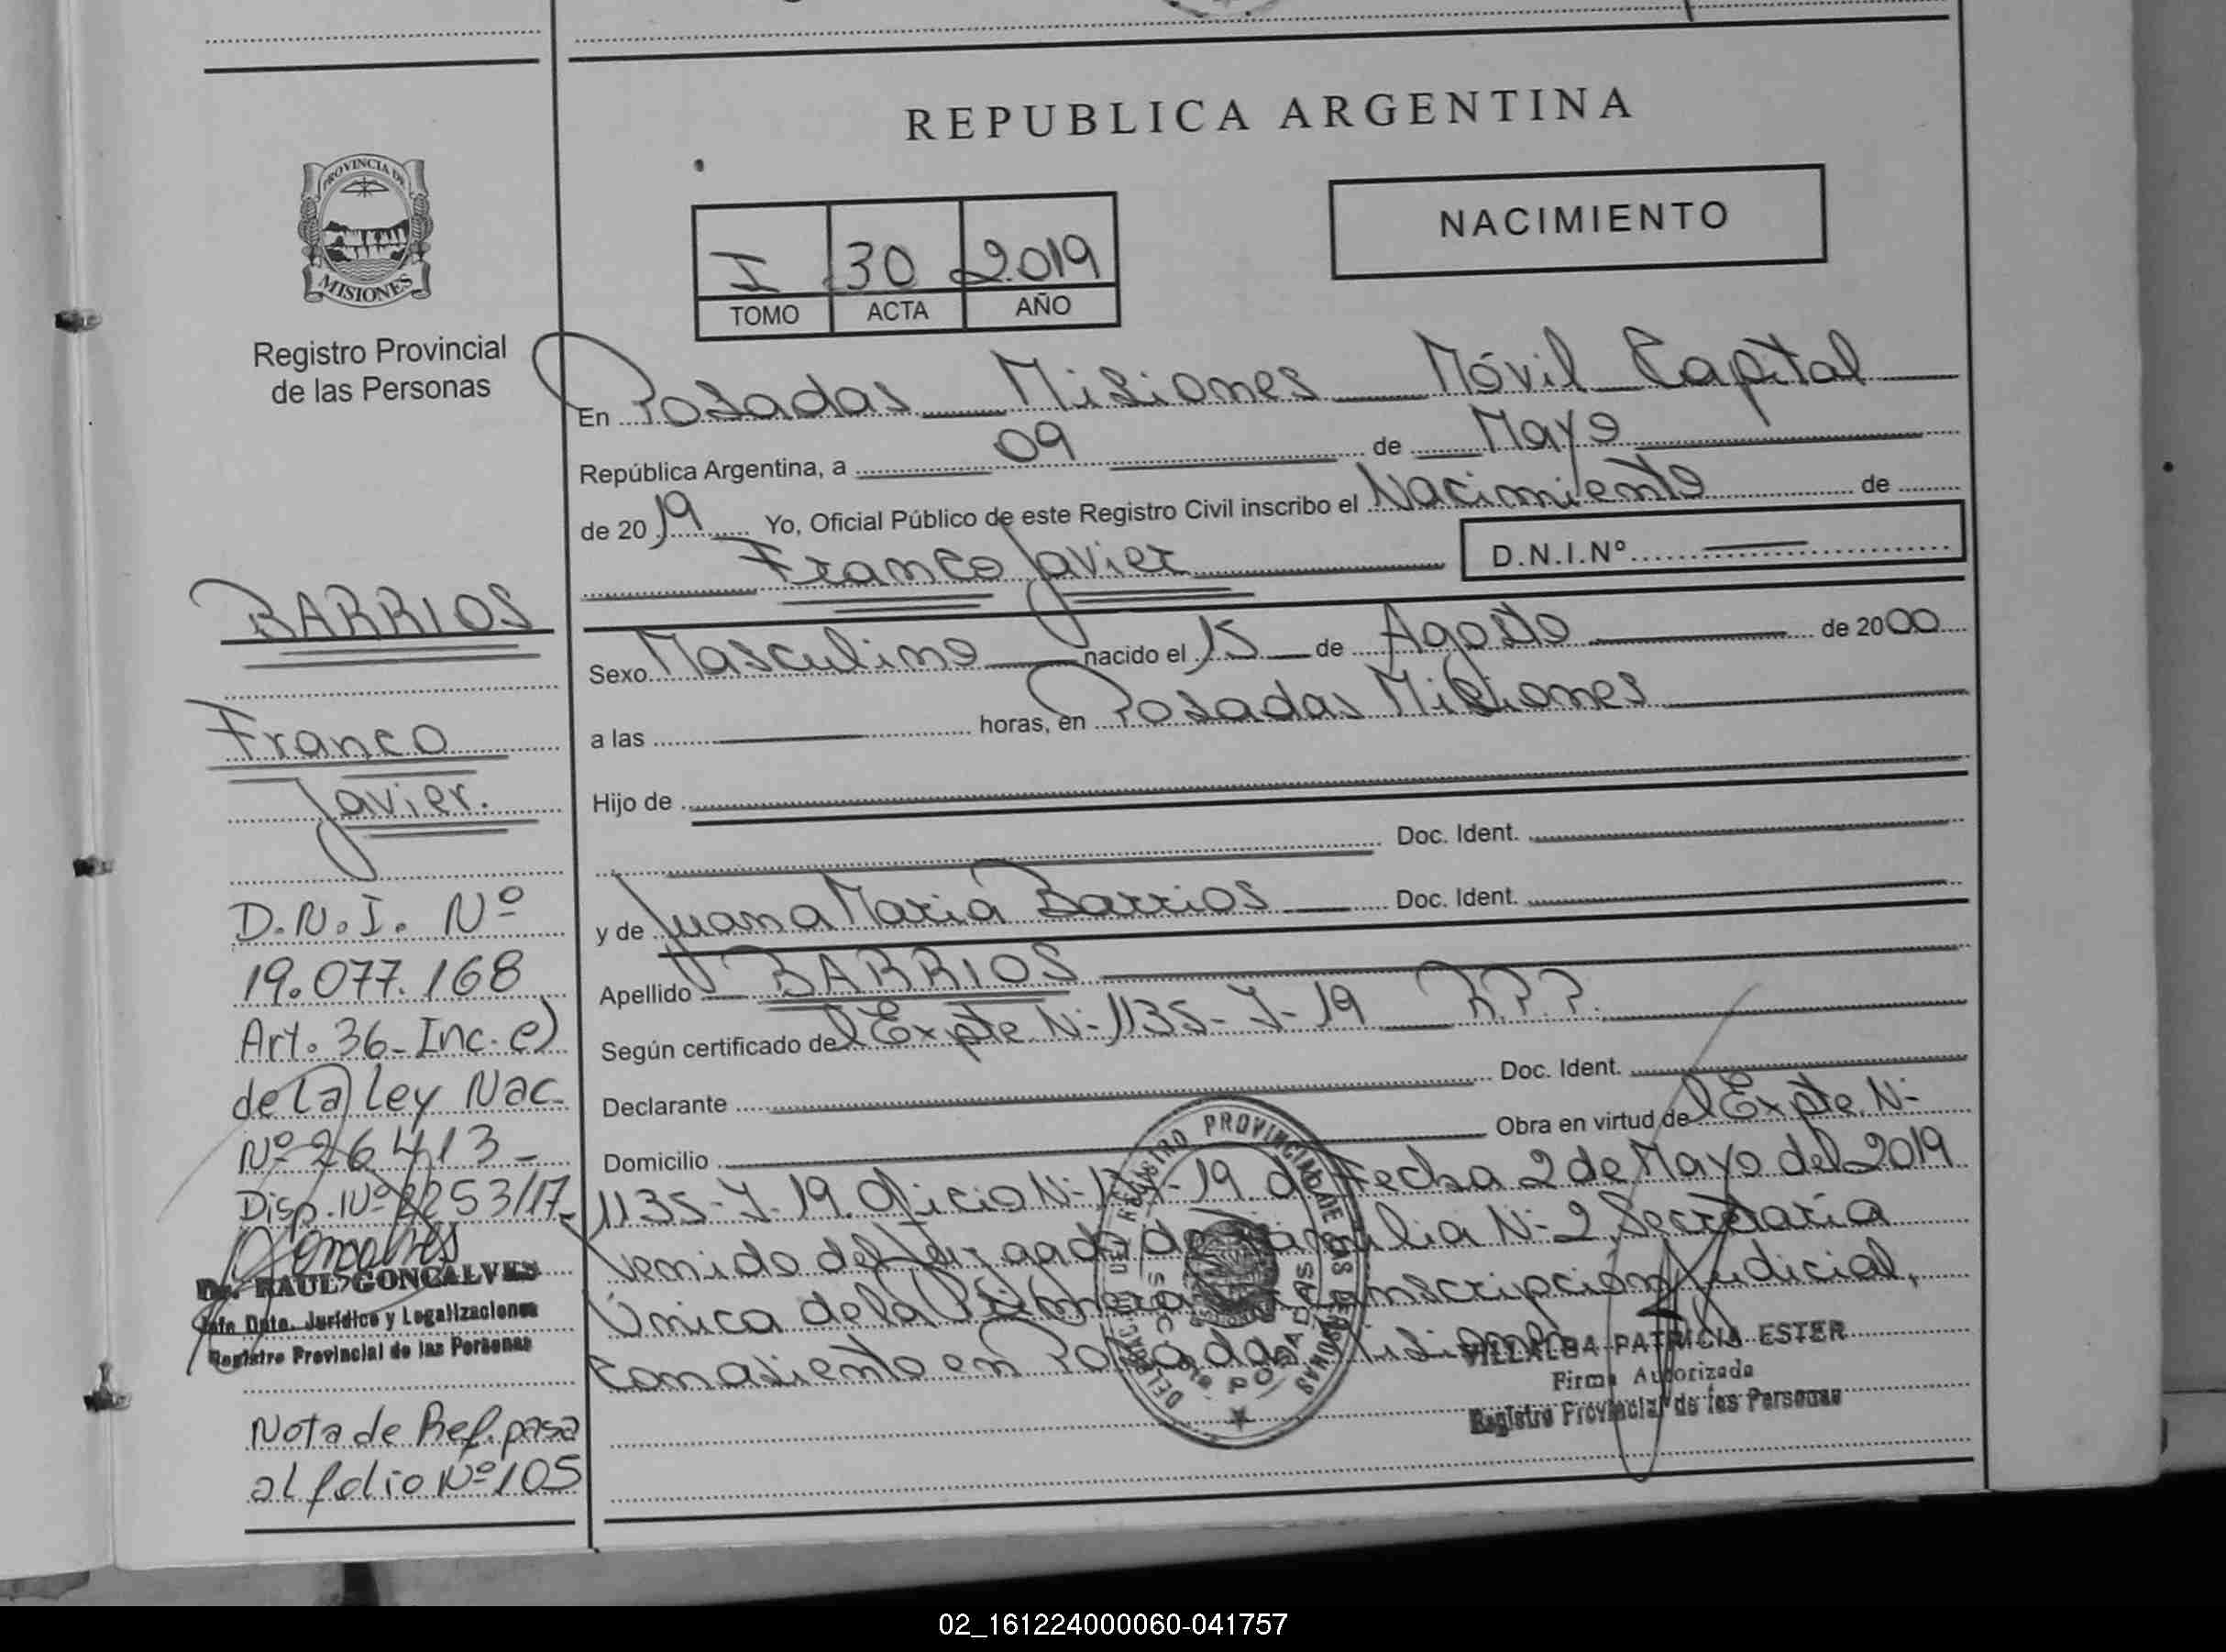 REPUBLICA ARGENTINA
PROVINCIA DE
MISIONES
Registro Provincial
de las Personas
I 30 2019
TOMO ACTA AÑO
NACIMIENTO
En Posadas Misiones Móvil Capital
República Argentina, a 09 de Mayo
de 2019 Yo, Oficial Público de este Registro Civil inscribo el Nacimiento de
Franco Javier
D.N.I.Nº
Sexo Masculino nacido el 15 de Agosto de 2000
a las horas, en Posadas Misiones
Hijo de
Doc. Ident.
y de Juana Maria Barrios Doc. Ident.
Apellido BARRIOS
Según certificado del Expte. N: 1135-Y-19 R.P.P.
Declarante Doc. Ident.
Domicilio Obra en virtud del Expte. N-
1135-Y-19. Oficio N: -19. de Fecha 2 de Mayo del 2019
Venido del Juzgado de Familia N-2, Secretaría
Única de la Primera Circunscripción Judicial,
con asiento en Posadas Misiones
VILLALBA PATRICIA ESTER
Firma Autorizada
Registro Provincial de las Personas
REGISTRO PROVINCIAL DE LAS PERSONAS
BARRIOS
Franco
Javier.
D.N.I. Nº
19.077.168
Art. 36-Inc. e)
de la ley Nac.
Nº 26413-
Disp. Nº 2253/17
Dr. RAUL GONCALVES
Jefe Dpto. Jurídico y Legalizaciones
Registro Provincial de las Personas
Nota de Ref. pasa
al folio Nº 105
02_161224000060-041757